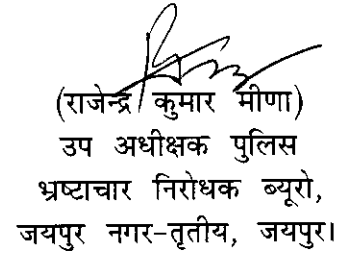 (राजेन्द्र कुमार मीणा)
उप अधीक्षक पुलिस
भ्रष्टाचार निरोधक ब्यूरो,
जयपुर नगर-तृतीय, जयपुर।